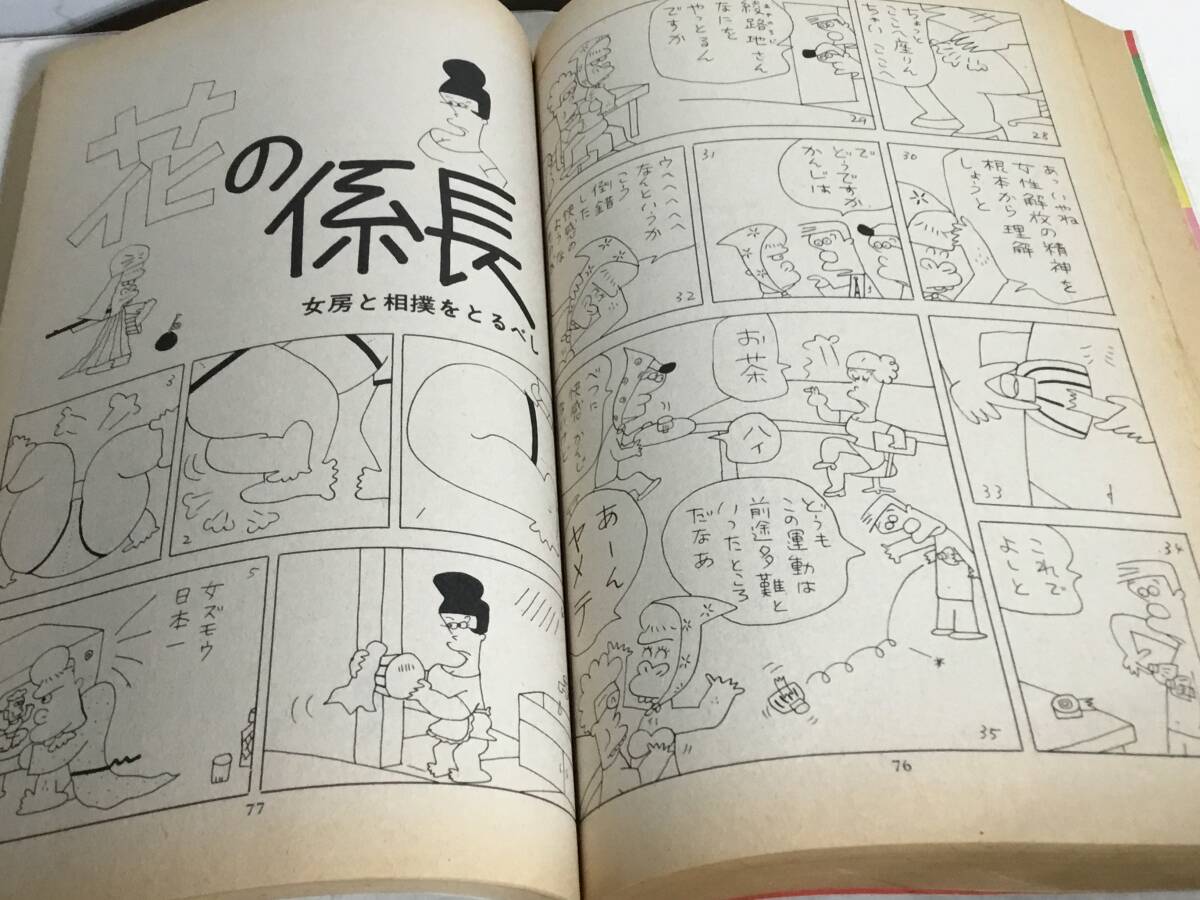 ちょっと
ここへ座りん
ちょい ここへ
28
綾路地さん
なにを
やっとるん
ですか
29
あっいやね
女性解放の精神を
根本から理解
しようと
30
で
どうですか
かんじは
31
ウヘヘヘヘヘ
なんというか
こう
倒錯
した
快感の
ような
32
33
これで
よしと
34
お茶
ハイ
べつに
快感
どうも
この運動は
前途多難と
いったところ
だなあ
あーん
ヤメテ
35
76
花の係長
女房と相撲をとるべし
2
3
女ズモウ
日本一
5
77